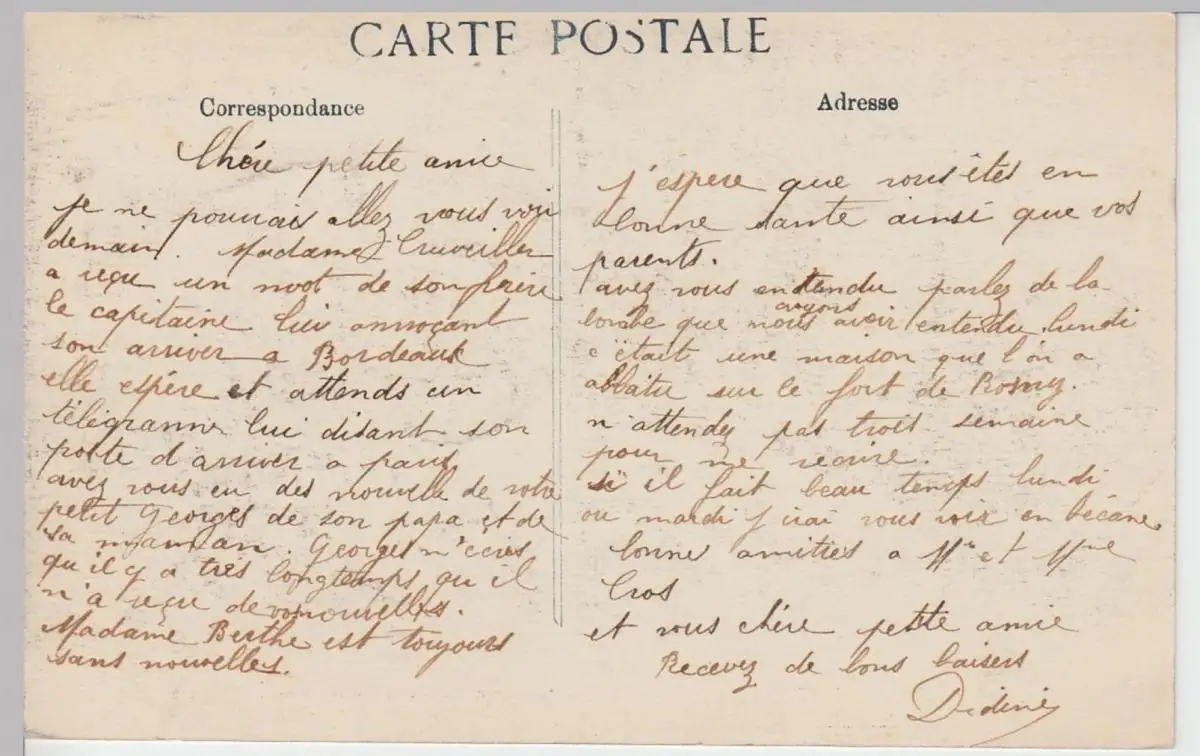 CARTE POSTALE
Correspondance
Chére petite amie
je ne pourrais allez vous voir
demain. Madame Cruveiller
a reçu un mot de son frère
le capitaine lui annoçant
son arriver a Bordeaux
elle espére et attends un
télégramme lui disant son
porte d'arriver a paris
avez vous eu des nouvelle de votre
petit Georges de son papa et de
sa maman. Georges m'écris
qu'il y a très longtemps qu'il
n'a reçu de vos nouvelles.
Madame Berthe est toujours
sans nouvelles.
Adresse
j'éspere que vous êtes en
bonne sante ainsi que vos
parents.
avez vous entendu parlez de la
bombe que nous avoir entendu lundi
avyons
c'était une maison que l'on a
abbatu sur le fort de Rosny.
n'attendez pas trois semaine
pour me reécrire.
si il fait beau temps lundi
ou mardi j'irai vous voir en bécane.
bonne amitiés a Mr et Mme
Cros
et vous chére petite amie
Recevez de bons baisers
Didine